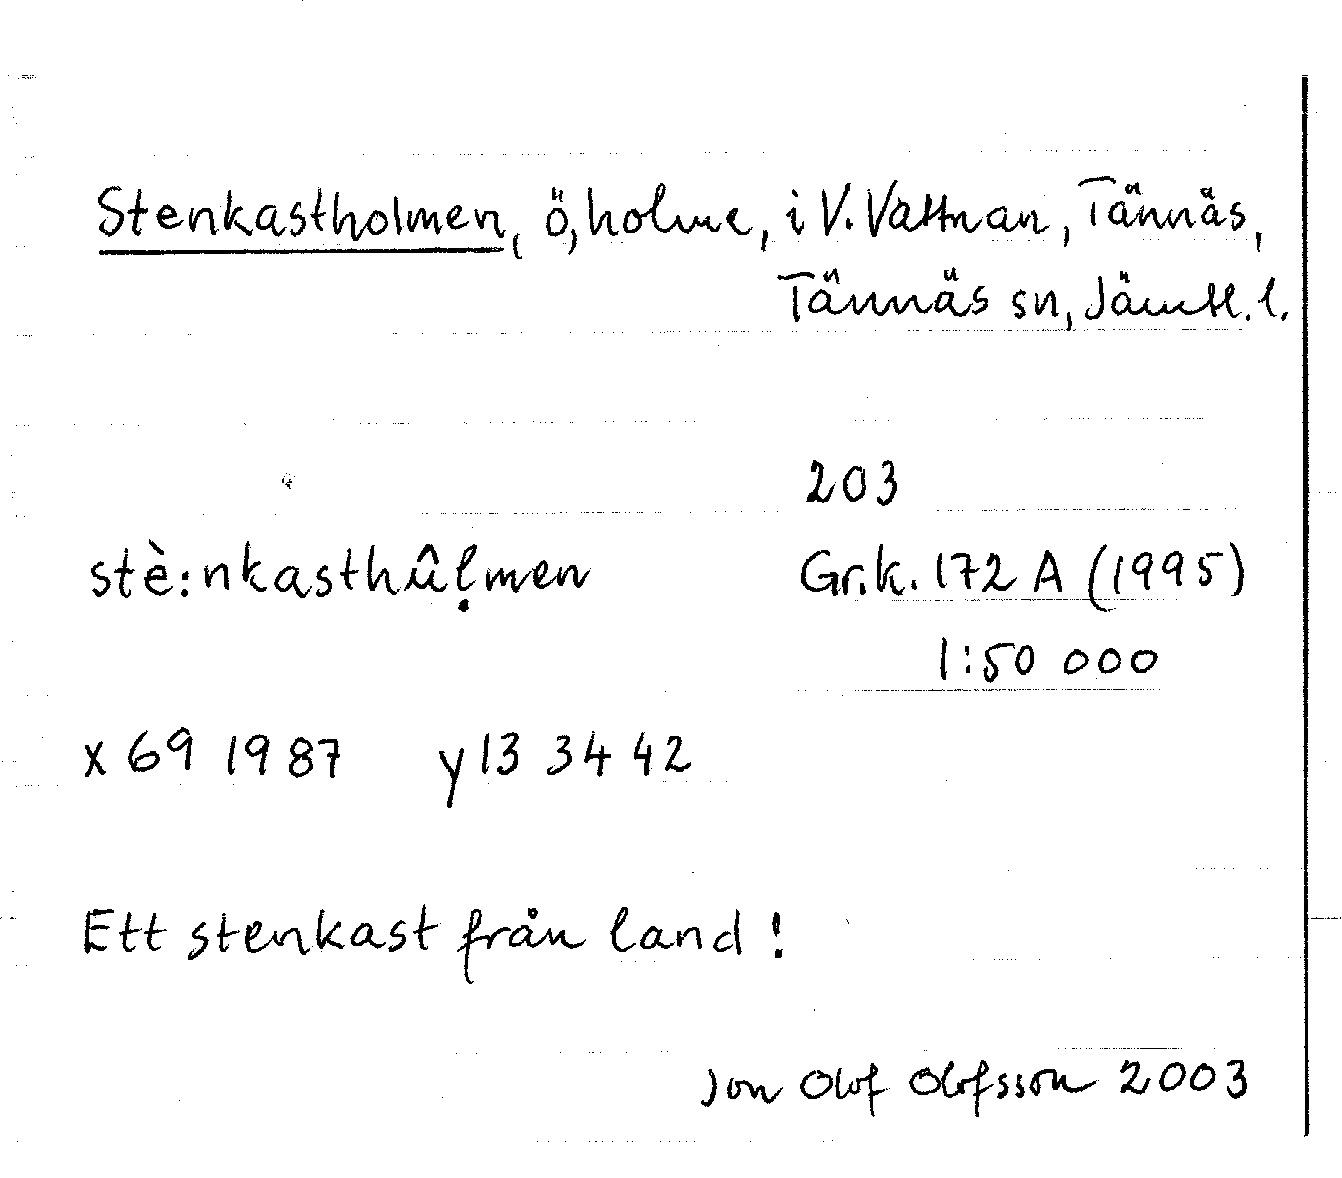 Stenkastholmen, ö, holme, i V. Vattnan, Tännäs,
Tännäs sn, Jämtl. l.
203
stè:nkasthûḷmen Gr.k. 172 A (1995)
1:50 000
x 69 19 87 y 13 34 42
Ett stenkast från land!
Jon Olof Olofsson 2003